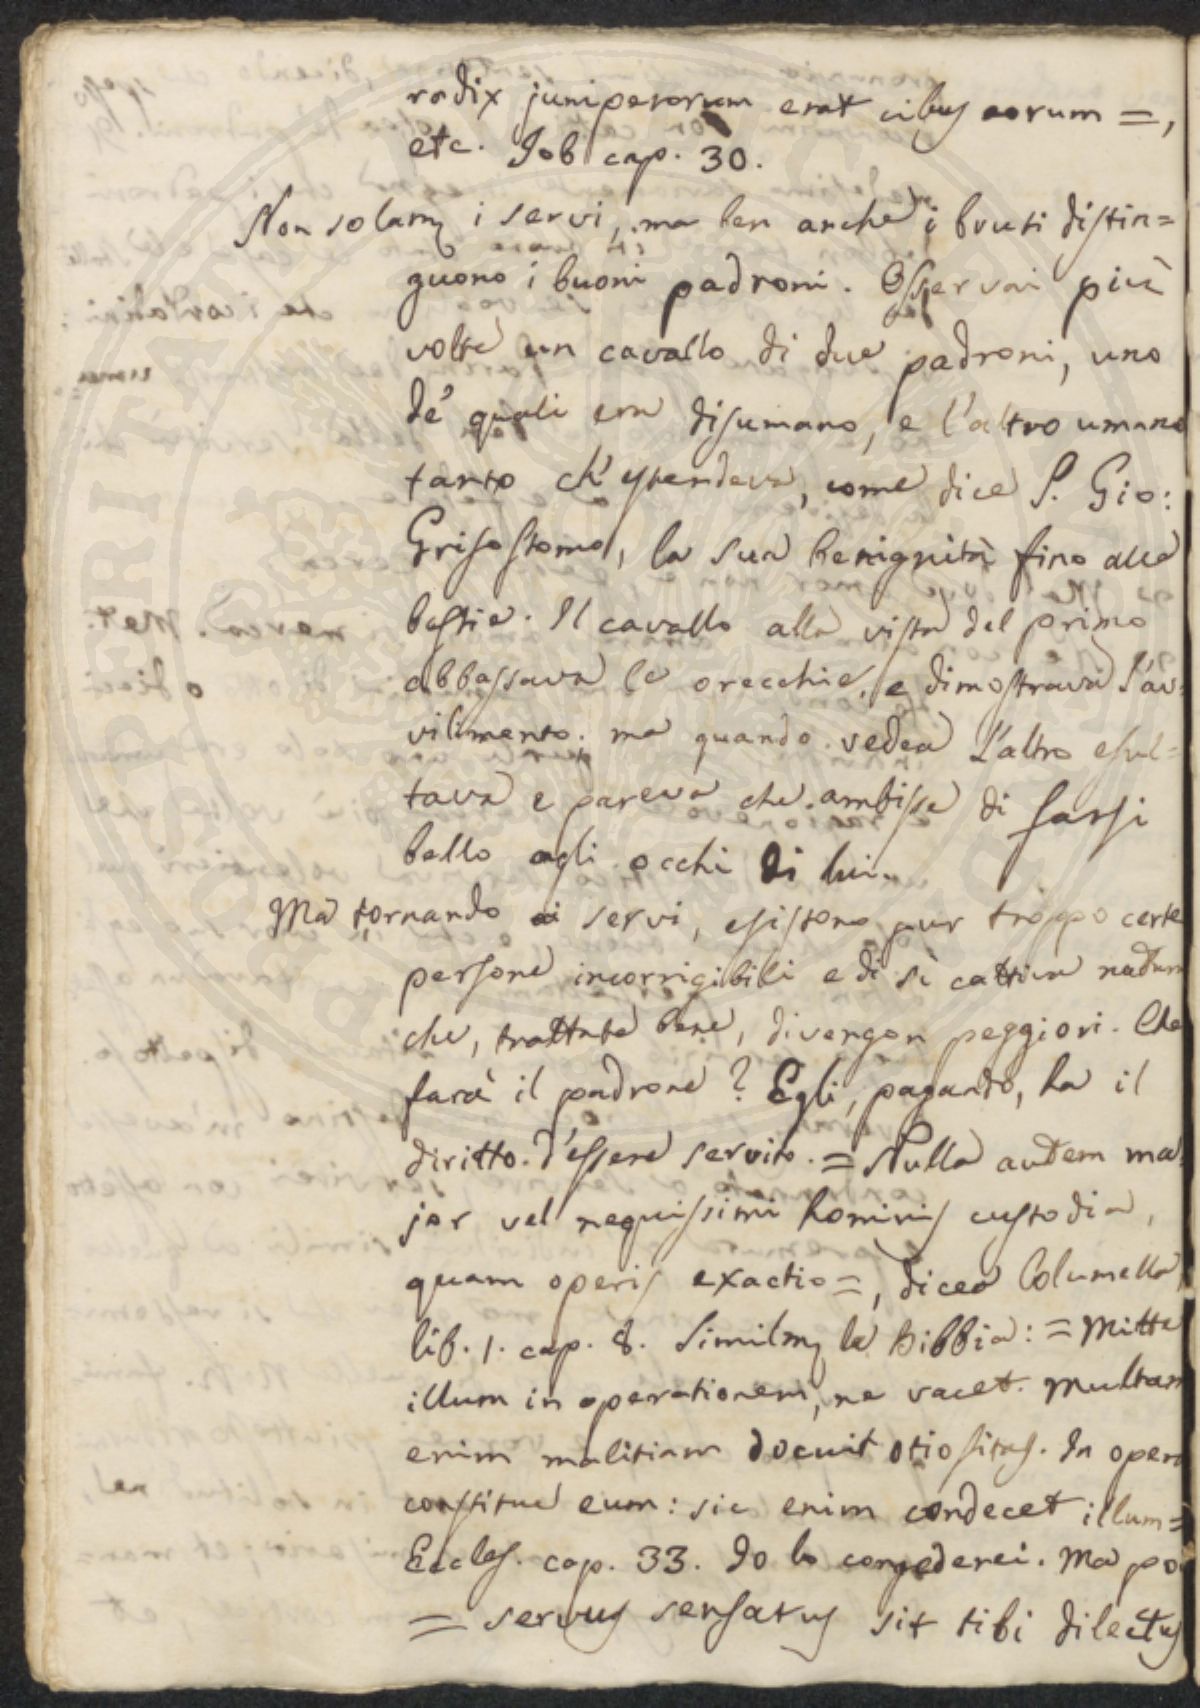 radix juniperorum erat cibus eorum =,
etc. Job cap. 30.
Non solamẽ i servi, ma ben anche i bruti distin=
guono i buoni padroni. Osservai più
volte un cavallo di due padroni, uno
de' quali era disumano, e l'altro umano
tanto ch'estendeva, come dice S. Gio:
Grisostomo, la sua benignità fino alle
bestie. Il cavallo alla vista del primo
abbassava le orecchie, e dimostrava l'av=
vilimento; ma quando vedea l'altro esul=
tava e pareva che ambisse di farsi
bello agli occhi di lui.
Ma tornando ai servi, esistono pur troppo certe
persone incorrigibili e di sì cattiva natura
che, trattate bene, divengon peggiori. Che
farà il padrone? Egli, pagando, ha il
diritto d'essere servito. = Nulla autem ma=
jor vel nequissimi hominis custodia,
quam operis exactio =, dicea Columella,
lib. 1. cap. 8. Similmẽ la Bibbia: = Mitte
illum in operationem, ne vacet. Multam
enim malitiam docuit otiositas. In opera
constitue eum: sic enim condecet illum =
Eccles. cap. 33. Io lo congederei. Ma poi
= servus sensatus sit tibi dilectus
PROSPERITATE